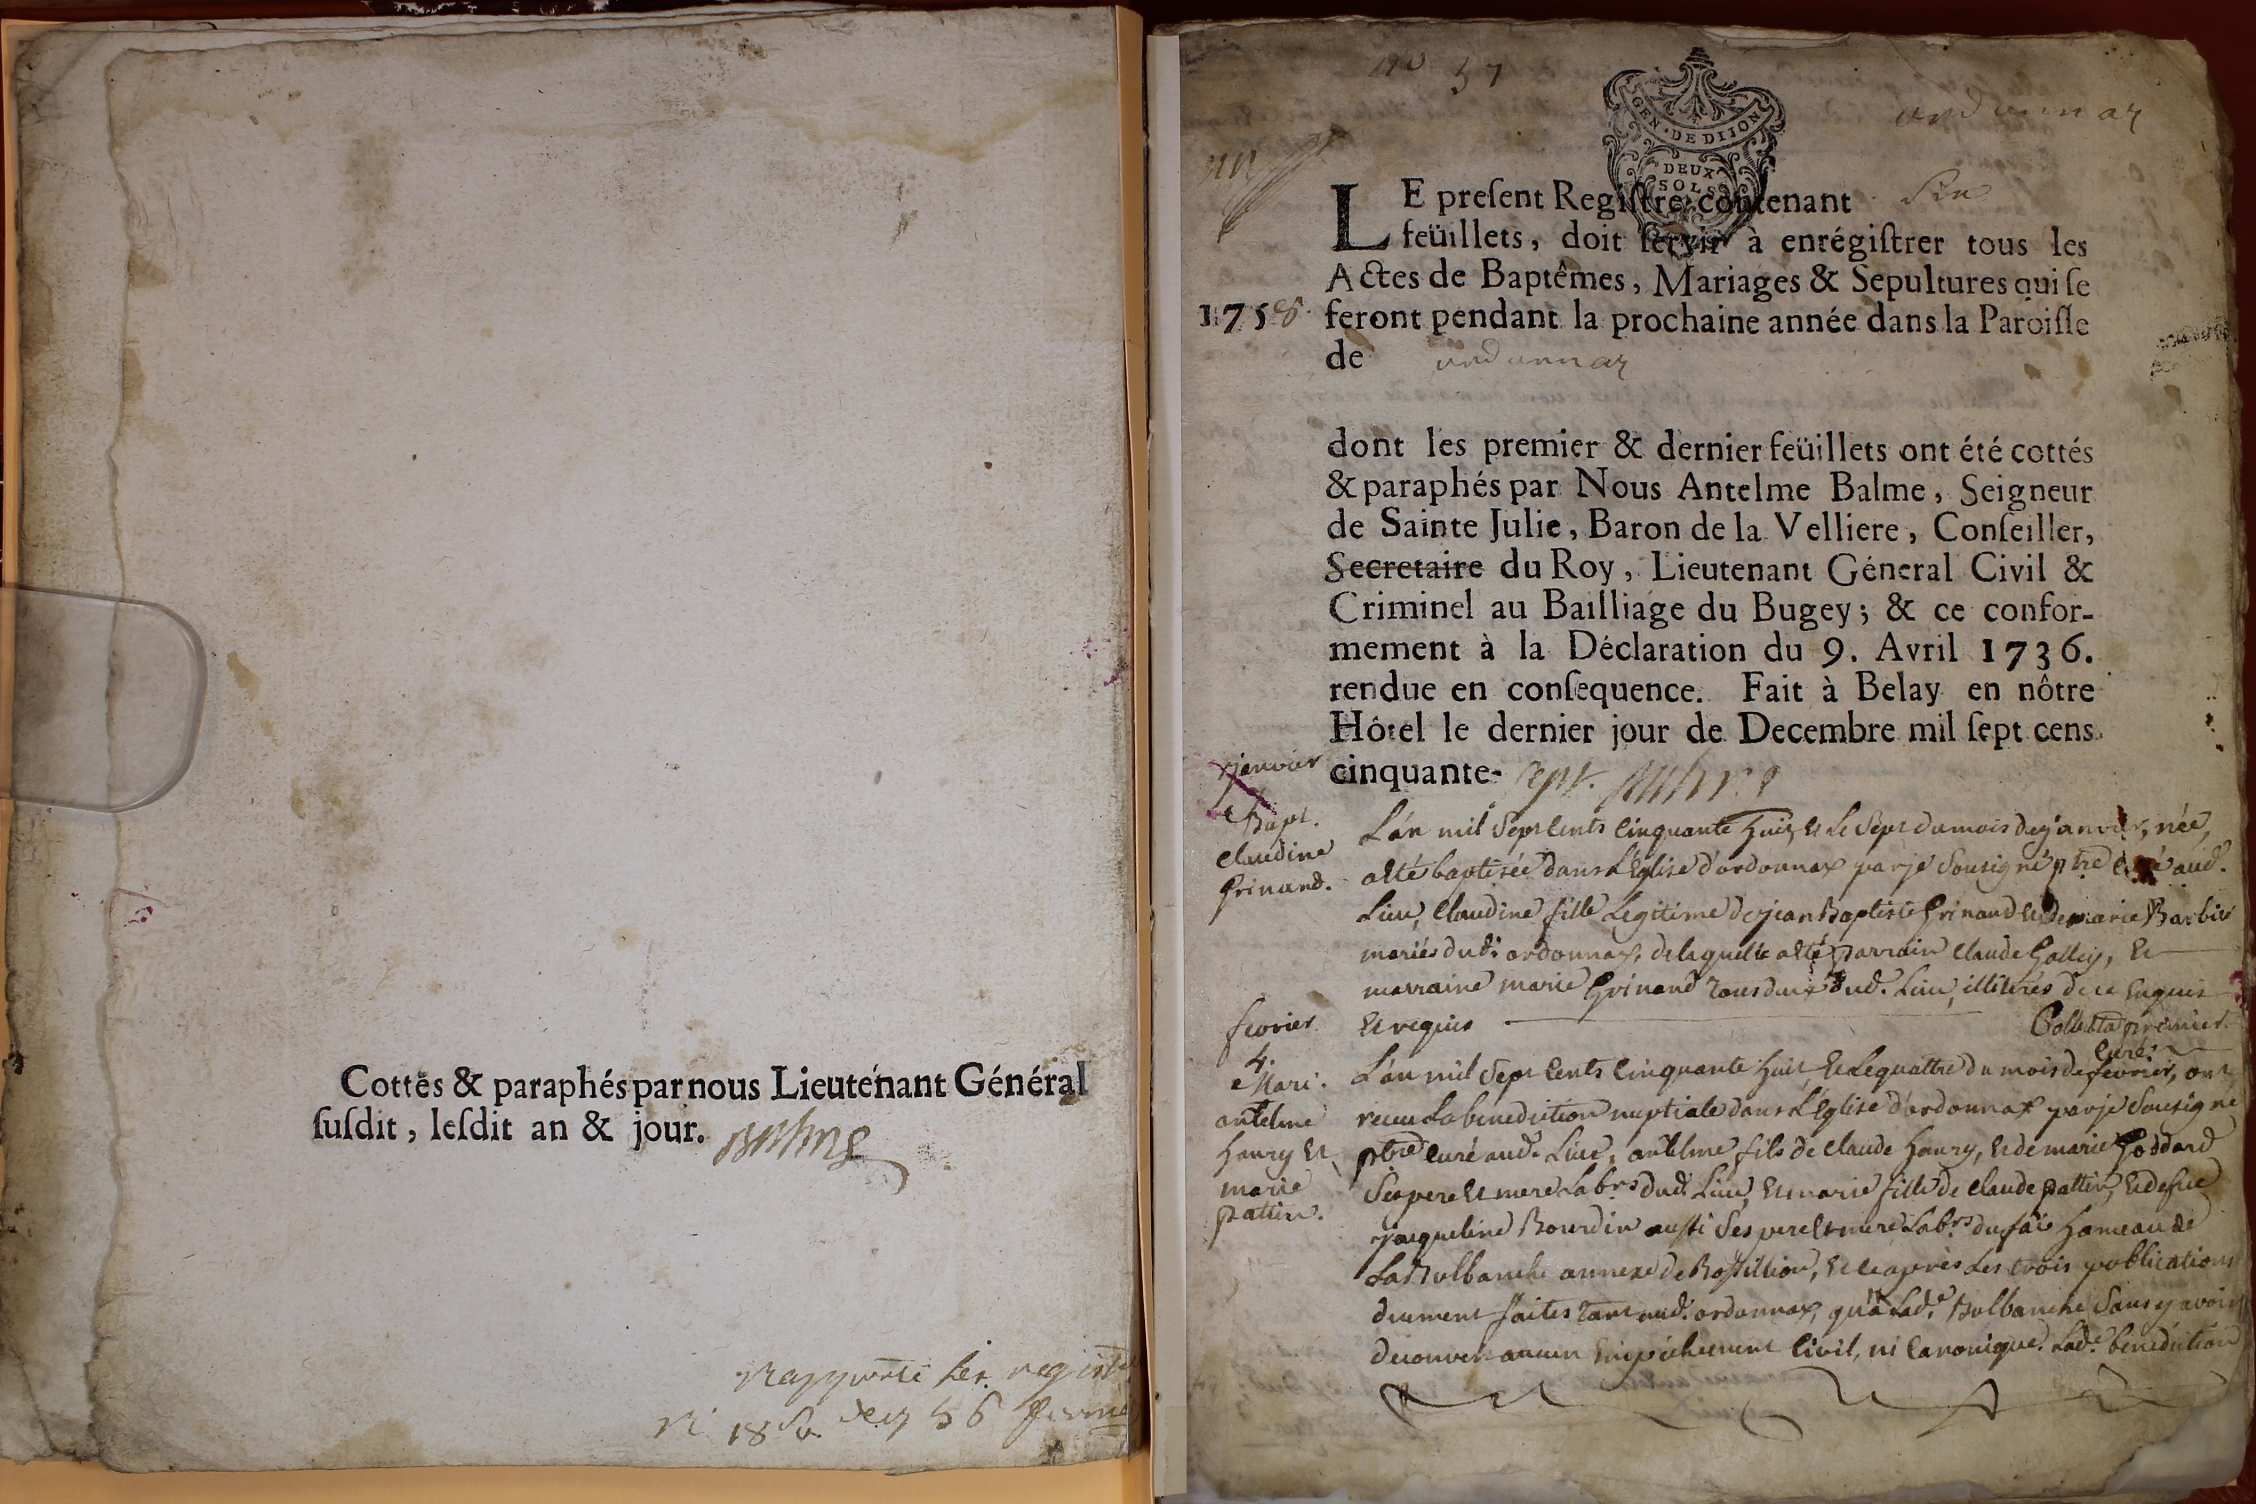 Cottés & paraphés par nous Lieutenant Général
ſuſdit, leſdit an & jour. Balme
57
ordonnaz
GEN · DE DIJON
DEUX
SOLS
LE preſent Regiſtre contenant Six
feüillets, doit ſervir à enrégiſtrer tous les
Actes de Baptêmes, Mariages & Sepultures qui ſe
1758. feront pendant la prochaine année dans la Paroiſſe
de ordonnaz
dont les premier & dernier feüillets ont été cottés
& paraphés par Nous Antelme Balme, Seigneur
de Sainte Julie, Baron de la Velliere, Conſeiller,
Secretaire du Roy, Lieutenant Général Civil &
Criminel au Bailliage du Bugey; & ce confor-
mement à la Déclaration du 9. Avril 1736.
rendue en conſequence. Fait à Belay en nôtre
Hôtel le dernier jour de Decembre mil ſept cens
cinquante- sept. Balme
janvier
7
Bapt.
Claudine
Grinand.
L'an mil Sept Cents Cinquante huit, et Le Sept du mois de janvier, née,
a été baptisée dans L'Eglise d'ordonnax par je Sousigné ptre Curé aud.
Lieu, Claudine fille Legitime de jean Baptiste Grinand et de marie Barbier
mariés dud. ordonnax, de laquelle a été parrain Claude Golley, et
marraine marie Grinand tous deux dud. Lieu, illiterés de ce Enquis
et requis Colletta premier
Curé
fevrier
4.
Mari.
antelme
Honry et
marie
pattin.
L'an mil Sept Cents Cinquante huit, et Le quattre du mois de fevrier, ont
receu La benediction nuptiale dans L'Eglise d'ordonnax par je Sousigné
ptre Curé aud. Lieu, antelme fils de Claude Honry, et de marie Goddard
Ses pere et mere Labrs dud. Lieu, et marie fille de Claude pattin, et de fue
jacqueline Bourdin aussi Ses pere et mere Labrs du faie hameau de
La Bulbanche annexe de Rossillion, et ce après Les trois publications
duement faites tant aud. ordonnax, qu'a Lade Bulbanche Sans y avoir
decouvert aucun Empêchement Civil, ni Canonique. Lade benediction